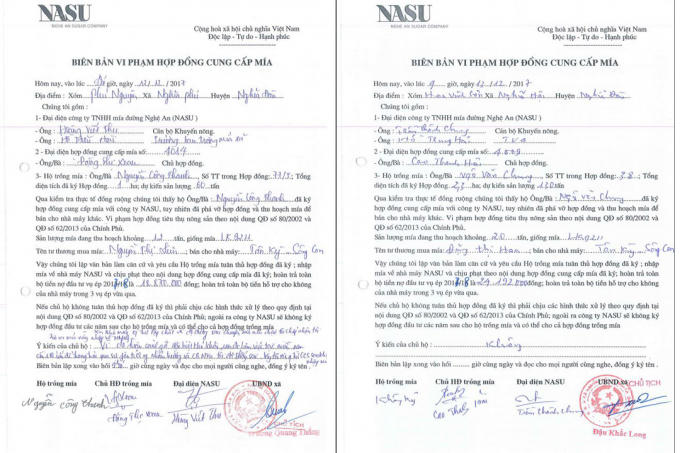 NASU
NGHE AN SUGAR COMPANY
Cộng hoà xã hội chủ nghĩa Việt Nam
Độc lập - Tự do - Hạnh phúc
BIÊN BẢN VI PHẠM HỢP ĐỒNG CUNG CẤP MÍA
Hôm nay, vào lúc giờ, ngày 12/12/2017
Địa điểm : Xóm Phú Nguyên Xã Nghĩa phú Huyện Nghĩa Đàn
Chúng tôi gồm :
1- Đại diện công ty TNHH mía đường Nghệ An (NASU)
- Ông : Hoàng Viết Thu Cán bộ Khuyến nông.
- Ông : Trưởng trạm
2 - Đại diện hợp đồng cung cấp mía số: 4014
- Ông/Bà : Chủ hợp đồng.
3- Hộ trồng mía : Ông/Bà Nguyễn Công Thanh Số TT trong Hợp đồng: Tổng
diện tích đã ký Hợp đồng 1 ha; dự kiến sản lượng 60 tấn
Qua kiểm tra thực tế đồng ruộng chúng tôi thấy hộ Ông/Bà : Nguyễn Công Thanh đã ký
hợp đồng cung cấp mía, tuy nhiên đã phá vỡ hợp đồng và thu hoạch mía để
bán cho nhà máy khác. Vi phạm hợp đồng tiêu thụ nông sản theo nội dung QĐ số 80/2002 và
QĐ số 62/2013 của Chính Phủ.
Sản lượng mía đang thu hoạch khoảng 12 tấn, giống mía LK9211
Tên tư thương mua mía: Nguyễn Thị ; bán cho nhà máy: Tân Kỳ, Sông Con
Vậy chúng tôi lập văn bản làm căn cứ và yêu cầu Hộ trồng mía tuân thủ hợp đồng đã ký ; nhập
mía về nhà máy NASU và chịu phạt theo nội dung hợp đồng cung cấp mía đã ký; hoàn trả toàn
bộ tiền nợ đầu tư vụ ép 17/18 là : 18.870.000 đồng; hoàn trả toàn bộ tiền hỗ trợ cho không
của nhà máy trong 3 vụ ép vừa qua.
Nếu chủ hộ không tuân thủ hợp đồng đã ký thì phải chịu các hình thức xử lý theo quy định tại
nội dung QĐ số 80/2002 và QĐ số 62/2013 của Chính Phủ; ngoài ra công ty NASU sẽ không
ký hợp đồng đầu tư các năm sau cho hộ trồng mía và có thể cho cả hợp đồng trồng mía
Ý kiến của chủ hộ :
Biên bản lập xong vào hồi giờ và đọc cho mọi người cùng nghe, đồng ý ký tên
Hộ trồng mía Chủ HĐ trồng mía Đại diện NASU UBND xã
Nguyễn Công Thanh Hoàng Viết Thu Trương Quang Thắng
NASU
NGHE AN SUGAR COMPANY
Cộng hoà xã hội chủ nghĩa Việt Nam
Độc lập - Tự do - Hạnh phúc
BIÊN BẢN VI PHẠM HỢP ĐỒNG CUNG CẤP MÍA
Hôm nay, vào lúc 9 giờ, ngày 12/12/2017
Địa điểm : Xóm Xã Huyện Nghĩa Đàn
Chúng tôi gồm :
1- Đại diện công ty TNHH mía đường Nghệ An (NASU)
- Ông : Thành Chung Cán bộ Khuyến nông.
- Ông :
2 - Đại diện hợp đồng cung cấp mía số: 4.009
- Ông/Bà : Cao Thanh Chủ hợp đồng.
3- Hộ trồng mía : Ông/Bà Ngô Văn Chung Số TT trong Hợp đồng: 38 Tổng
diện tích đã ký Hợp đồng ha; dự kiến sản lượng 120 tấn
Qua kiểm tra thực tế đồng ruộng chúng tôi thấy hộ Ông/Bà : Ngô Văn Chung đã ký
hợp đồng cung cấp mía, tuy nhiên đã phá vỡ hợp đồng và thu hoạch mía để
bán cho nhà máy khác. Vi phạm hợp đồng tiêu thụ nông sản theo nội dung QĐ số 80/2002 và
QĐ số 62/2013 của Chính Phủ.
Sản lượng mía đang thu hoạch khoảng 20 tấn, giống mía LK9211
Tên tư thương mua mía: ; bán cho nhà máy: Tân Kỳ, Sông Con
Vậy chúng tôi lập văn bản làm căn cứ và yêu cầu Hộ trồng mía tuân thủ hợp đồng đã ký ; nhập
mía về nhà máy NASU và chịu phạt theo nội dung hợp đồng cung cấp mía đã ký; hoàn trả toàn
bộ tiền nợ đầu tư vụ ép 17/18 là : 24.192.000 đồng; hoàn trả toàn bộ tiền hỗ trợ cho không
của nhà máy trong 3 vụ ép vừa qua.
Nếu chủ hộ không tuân thủ hợp đồng đã ký thì phải chịu các hình thức xử lý theo quy định tại
nội dung QĐ số 80/2002 và QĐ số 62/2013 của Chính Phủ; ngoài ra công ty NASU sẽ không
ký hợp đồng đầu tư các năm sau cho hộ trồng mía và có thể cho cả hợp đồng trồng mía
Ý kiến của chủ hộ : Không
Biên bản lập xong vào hồi giờ và đọc cho mọi người cùng nghe, đồng ý ký tên.
Hộ trồng mía Chủ HĐ trồng mía Đại diện NASU UBND xã
CHỦ TỊCH
Không ký Cao Thanh Thành Chung Đậu Khắc Long